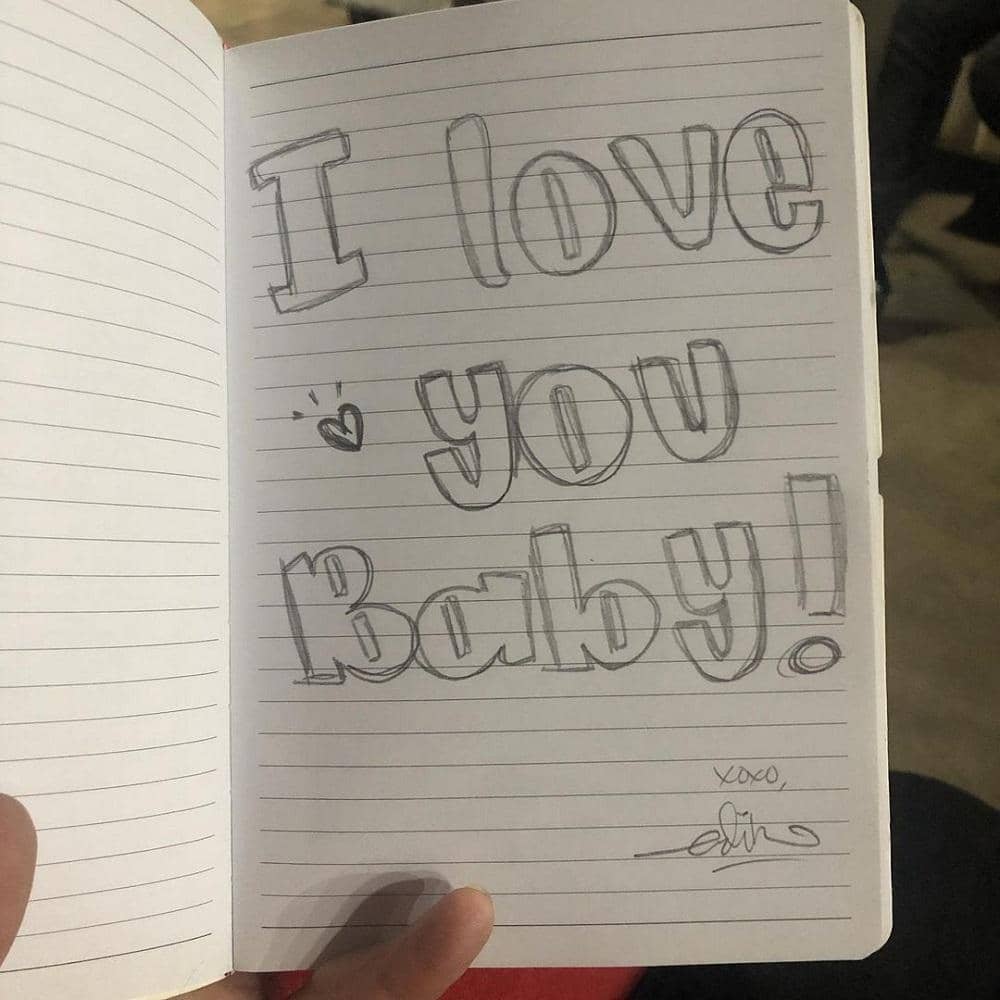 I love
you
Baby!
xoxo,